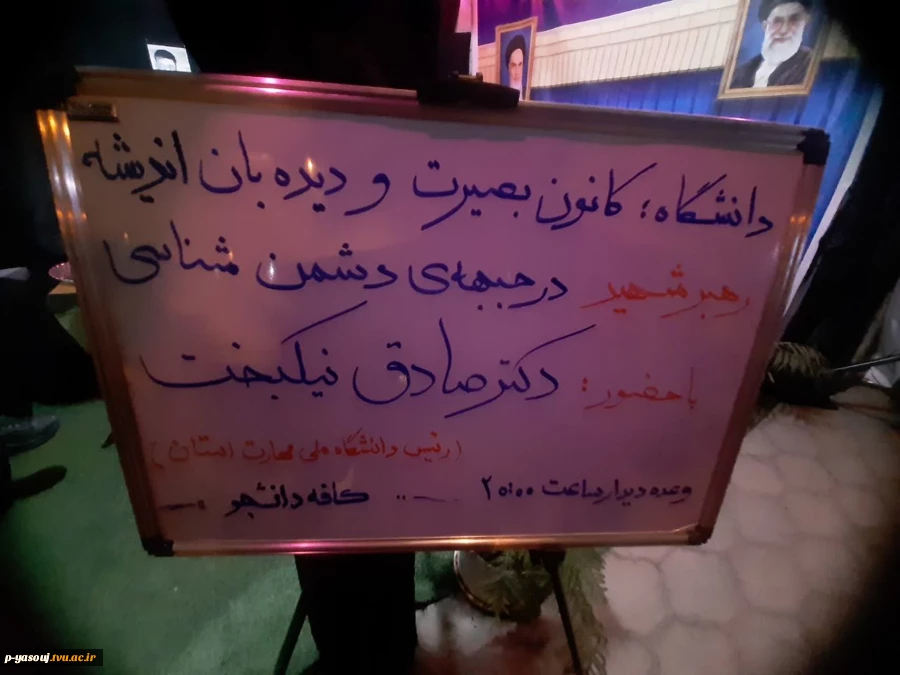 دانشگاه؛ کانون بصیرت و دیده بان اندیشه
رهبر شهید در جبهه‌ی دشمن شناسی
با حضور: دکتر صادق نیکبخت
(رئیس دانشگاه ملی مهارت استان)
وعده دیدار ساعت ۲۰:۰۰ ... کافه دانشجو
p-yasouj.tvu.ac.ir